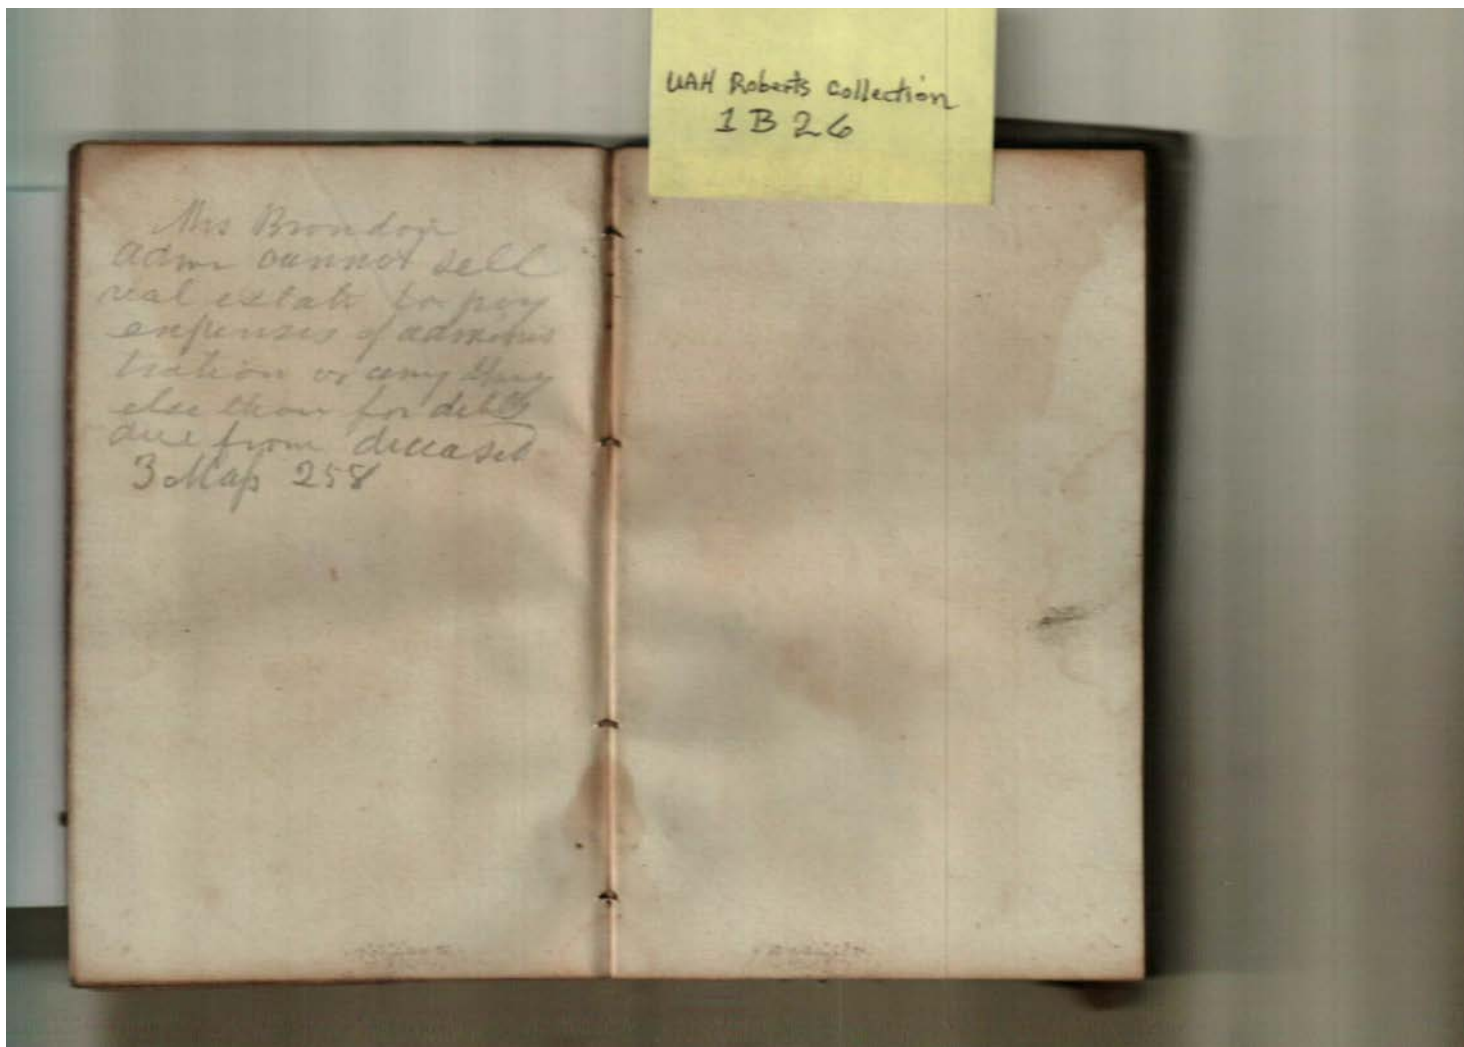 UAH Roberts Collection
1 B 26
Mrs Brandon
Admr cannot sell
real estate to pay
expenses of adminis
tration or any thing
else than for debts
due from deceased
3 Mass 258